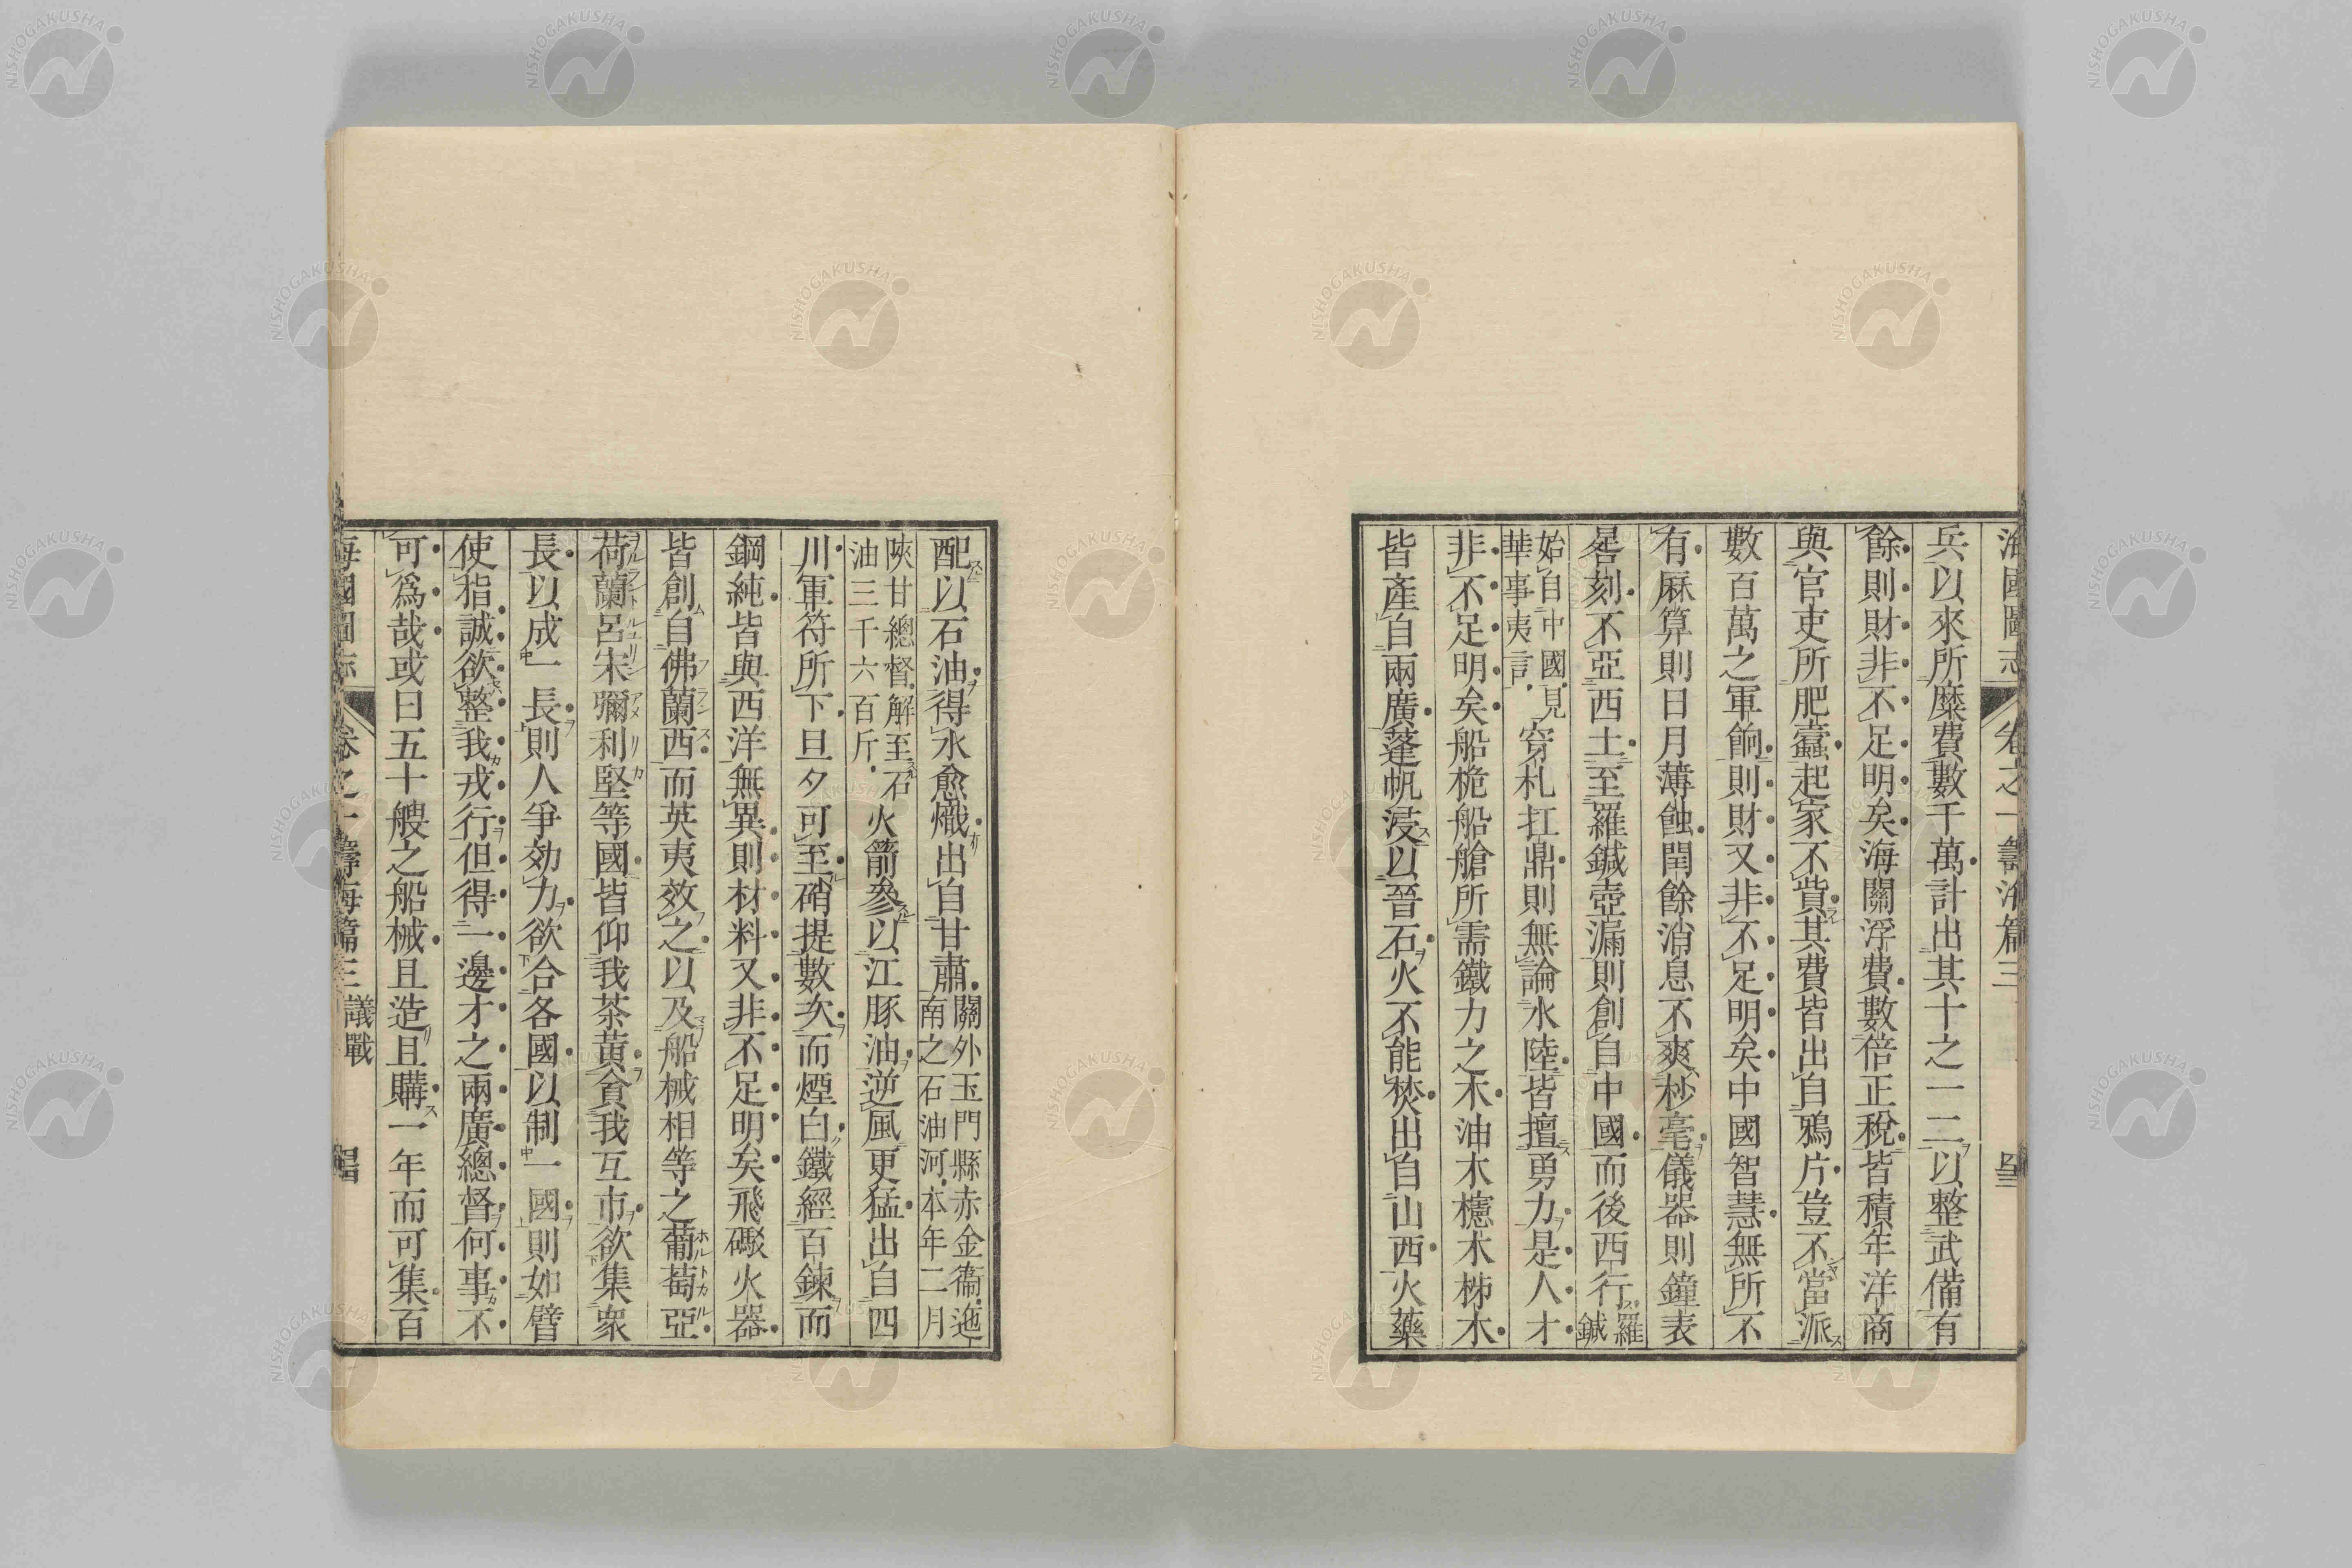 海國圖志 卷之一 籌海篇三
兵以來所糜費數千萬計出其十之一二以整武備有
餘則財非不足明矣海關浮費數倍正稅皆積年洋商
與官吏所肥蠹起家不貲其費皆出自鴉片豈不當派
數百萬之軍餉則財又非不足明矣中國智慧無所不
有麻算則日月薄蝕閏餘消息不爽秒毫儀器則鐘表
晷刻不亞西土至羅鍼壺漏則創自中國而後西行羅鍼
始自中國見華事夷言穿札扛鼎則無論水陸皆擅勇力是人才
非不足明矣船桅船艙所需鐵力之木油木櫶木柹木
皆產自兩廣蓬帆浸以晉石火不能焚出自山西火藥
配以石油得水愈熾出自甘肅關外玉門縣赤金衞迤南之石油河本年二月
陝甘總督解至石油三千六百斤火箭參以江豚油逆風更猛出自四
川軍符所下旦夕可至硝提數次而煙白鐵經百鍊而
鋼純皆與西洋無異則材料又非不足明矣飛礮火器
皆創自佛蘭西而英夷效之以及船械相等之葡萄亞
荷蘭呂宋彌利堅等國皆仰我茶黃貪我互市欲集衆
長以成一長則人爭効力欲合各國以制一國則如臂
使指誠欲整我戎行但得一邊才之兩廣總督何事不
可爲哉或曰五十艘之船械且造且購一年而可集百
海國圖志 卷之一 籌海篇三 議戰
NISHOGAKUSHA